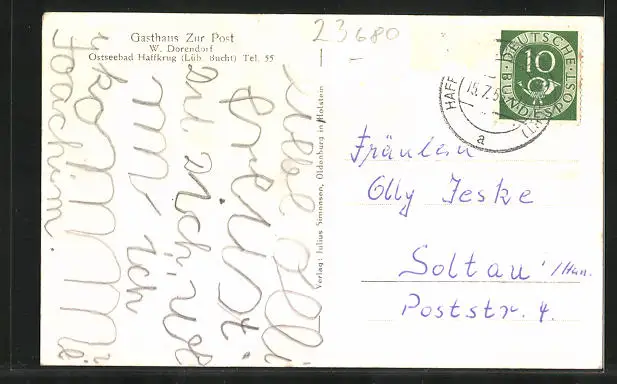 Gasthaus Zur Post
W. Dorendorf
Ostseebad Haffkrug (Lüb. Bucht) Tel. 55
23680
DEUTSCHE
10
BUNDESPOST
HAFF
15.7.5
a
Verlag: Julius Simonsen, Oldenburg in Holstein
Liebe Olli
freust
du dich, wo
nn ich
komm
Joachim.
Fräulein
Olly Jeske
Soltau /Han.
Poststr. 4.